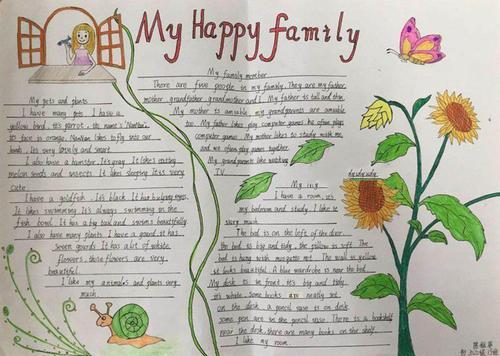 My Happy family
My family member
There are five people in my family. They are my father,
mother, grandfather, grandmother and I. My father is tall and thin.
My mother is amiable, my grandparents are amiable
too. My father likes play computer games. he often plays
computer games. My mother likes to study with me,
and we often play games together.
My grandparents like watching
TV
My pets and plants
I have many pets. I have a
yellow bird, it's parrot. its name's
its face is orange. likes to fly into our
hands. It's very lovely and smart.
I also have a hamster. It's gray. It like's eating
melon seeds and insects. It likes sleeping. It's very
cute.
I have a goldfish. It's black. It has big eyes.
It likes swimming. It's always swimming in the
fish bowl. It has a big tail and swims beautifully
I also have many plants. I have a gourd. it has
seven gourds. It has a lot of white
flowers, those flowers are very
beautiful.
I like my animals and plants very
much
My
I have a room. it's
my bedroom and study. I like it
very much.
The bed is on the left of the door.
the bed is big and tidy. the pillow is soft. The
bed is hung with mosquito net. The wall is yellow.
it looks beautiful. A blue wardrobe is near the bed.
My desk is in front. it's big and tidy.
it's white. Some books are neatly set
on the desk. a pencil vase is on desk.
some pen are in the pencil vase. There is a bookshelf
near the desk. there are many books on the shelf.
I like my room.